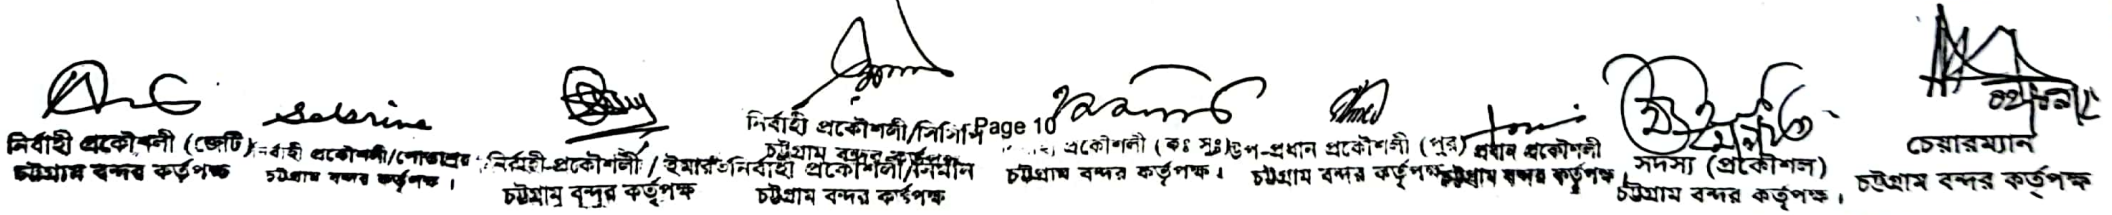 Sabrina
নির্বাহী প্রকৌশলী (জেটি)
চট্টগ্রাম বন্দর কর্তৃপক্ষ
নির্বাহী প্রকৌশলী/
চট্টগ্রাম বন্দর কর্তৃপক্ষ।
নির্বাহী প্রকৌশলী / ইমারত
চট্টগ্রাম বন্দর কর্তৃপক্ষ
নির্বাহী প্রকৌশলী/
চট্টগ্রাম বন্দর কর্তৃপক্ষ
নির্বাহী প্রকৌশলী/
চট্টগ্রাম বন্দর কর্তৃপক্ষ
Page 10
প্রকৌশলী (কঃ সুঃ)
চট্টগ্রাম বন্দর কর্তৃপক্ষ।
উপ-প্রধান প্রকৌশলী (পুর)
চট্টগ্রাম বন্দর কর্তৃপক্ষ
প্রধান প্রকৌশলী
চট্টগ্রাম বন্দর কর্তৃপক্ষ
সদস্য (প্রকৌশল)
চট্টগ্রাম বন্দর কর্তৃপক্ষ।
চেয়ারম্যান
চট্টগ্রাম বন্দর কর্তৃপক্ষ